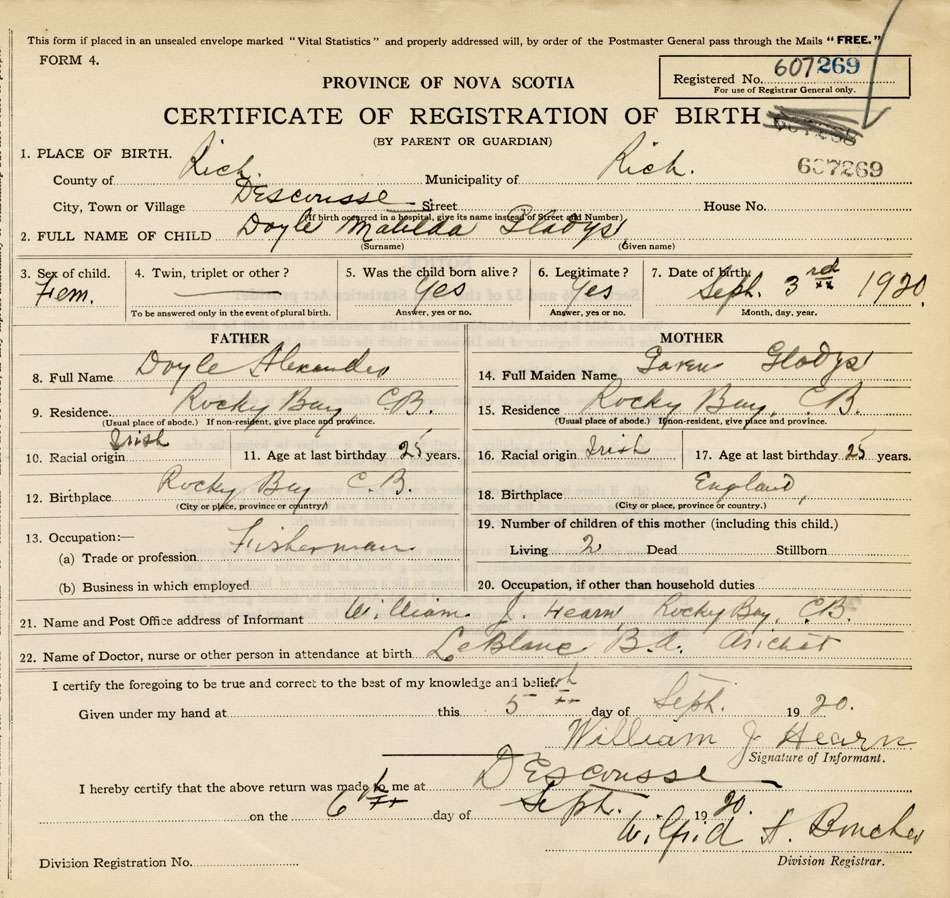 This form if placed in an unsealed envelope marked "Vital Statistics" and properly addressed will, by order of the Postmaster General pass through the Mails "FREE."
FORM 4.
Registered No. 607269
For use of Registrar General only.
PROVINCE OF NOVA SCOTIA
CERTIFICATE OF REGISTRATION OF BIRTH
(BY PARENT OR GUARDIAN)
607269
1. PLACE OF BIRTH.
County of Rich. Municipality of Rich.
City, Town or Village Descousse Street House No.
(If birth occurred in a hospital, give its name instead of Street and Number)
2. FULL NAME OF CHILD Doyle Matilda Gladys
(Surname) (Given name)
3. Sex of child. Fem.
4. Twin, triplet or other?
To be answered only in the event of plural birth.
5. Was the child born alive? Yes
Answer, yes or no.
6. Legitimate? Yes
Answer, yes or no.
7. Date of birth: Sept. 3rd 1920.
Month, day, year.
FATHER
8. Full Name Doyle Alexander
9. Residence. Rocky Bay, C.B.
(Usual place of abode.) If non-resident, give place and province.
10. Racial origin Irish 11. Age at last birthday 25 years.
12. Birthplace Rocky Bay C.B.
(City or place, province or country.)
13. Occupation:—
(a) Trade or profession Fisherman
(b) Business in which employed
MOTHER
14. Full Maiden Name Gladys
15. Residence Rocky Bay, C.B.
(Usual place of abode.) If non-resident, give place and province.
16. Racial origin Irish 17. Age at last birthday 25 years.
18. Birthplace England,
(City or place, province or country.)
19. Number of children of this mother (including this child.)
Living 2 Dead Stillborn
20. Occupation, if other than household duties
21. Name and Post Office address of Informant William J. Hearn, Rocky Bay, C.B.
22. Name of Doctor, nurse or other person in attendance at birth LeBlanc B.A. Arichat
I certify the foregoing to be true and correct to the best of my knowledge and belief.
Given under my hand at this 5th day of Sept. 1920.
William J. Hearn
Signature of Informant.
I hereby certify that the above return was made to me at DEscousse
on the 6th day of Sept. 1920.
Wilfrid A. Boucher
Division Registrar.
Division Registration No.